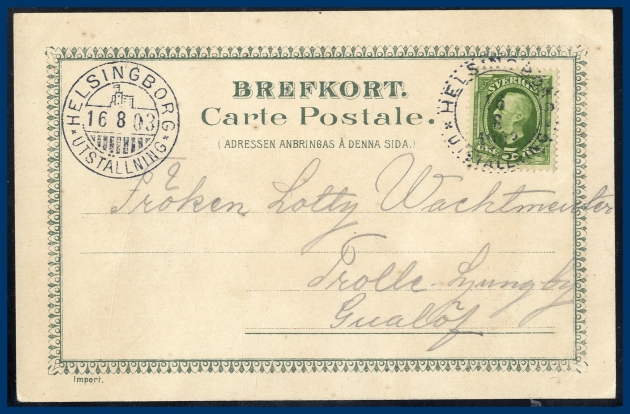 BREFKORT.
Carte Postale.
(ADRESSEN ANBRINGAS Å DENNA SIDA.)
HELSINGBORG
16 8 03
* UTSTÄLLNING *
* HELSINGBORG
UTSTÄLLNING
SVERIGE
Fröken Lotty Wachtmeister
Trolle-Ljungby
Gualöf
Import.